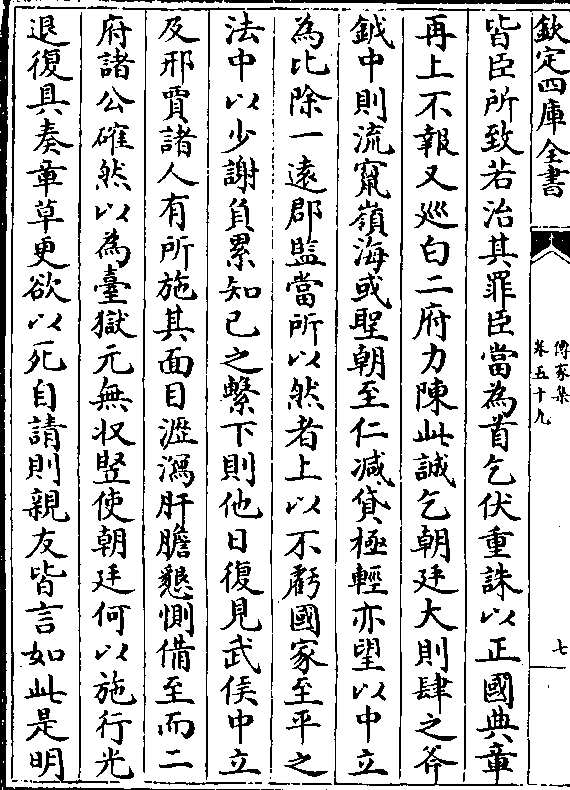 欽定四庫全書
傳家集
卷五十九
七
皆臣所致若治其罪臣當為首乞伏重誅以正國典章
再上不報又巡白二府力陳此誠乞朝廷大則肆之斧
鉞中則流竄嶺海或聖朝至仁减貸極輕亦望以中立
為比除一遠郡監當所以然者上以不虧國家至平之
法中以少謝負累知已之繫下則他日復見武侯中立
及邢賈諸人有所施其面目瀝瀉肝膽懇惻備至而二
府諸公確然以為臺獄元無収竪使朝廷何以施行光
退復具奏章草更欲以死自請則親友皆言如此是明